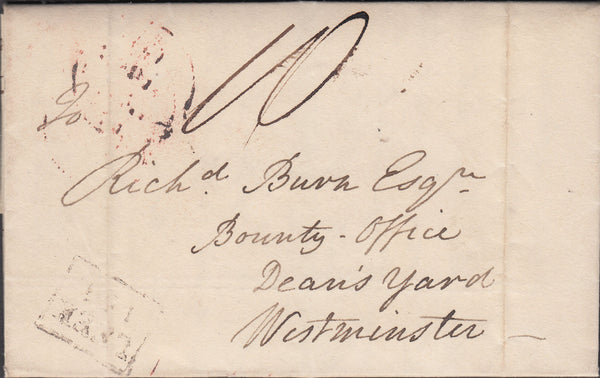 To
10
Richd. Burn Esqre
Bounty - Office
Dean's Yard
Westminster